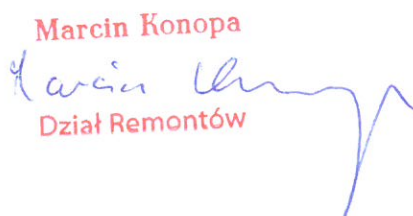 Marcin Konopa
Marcin
Dział Remontów